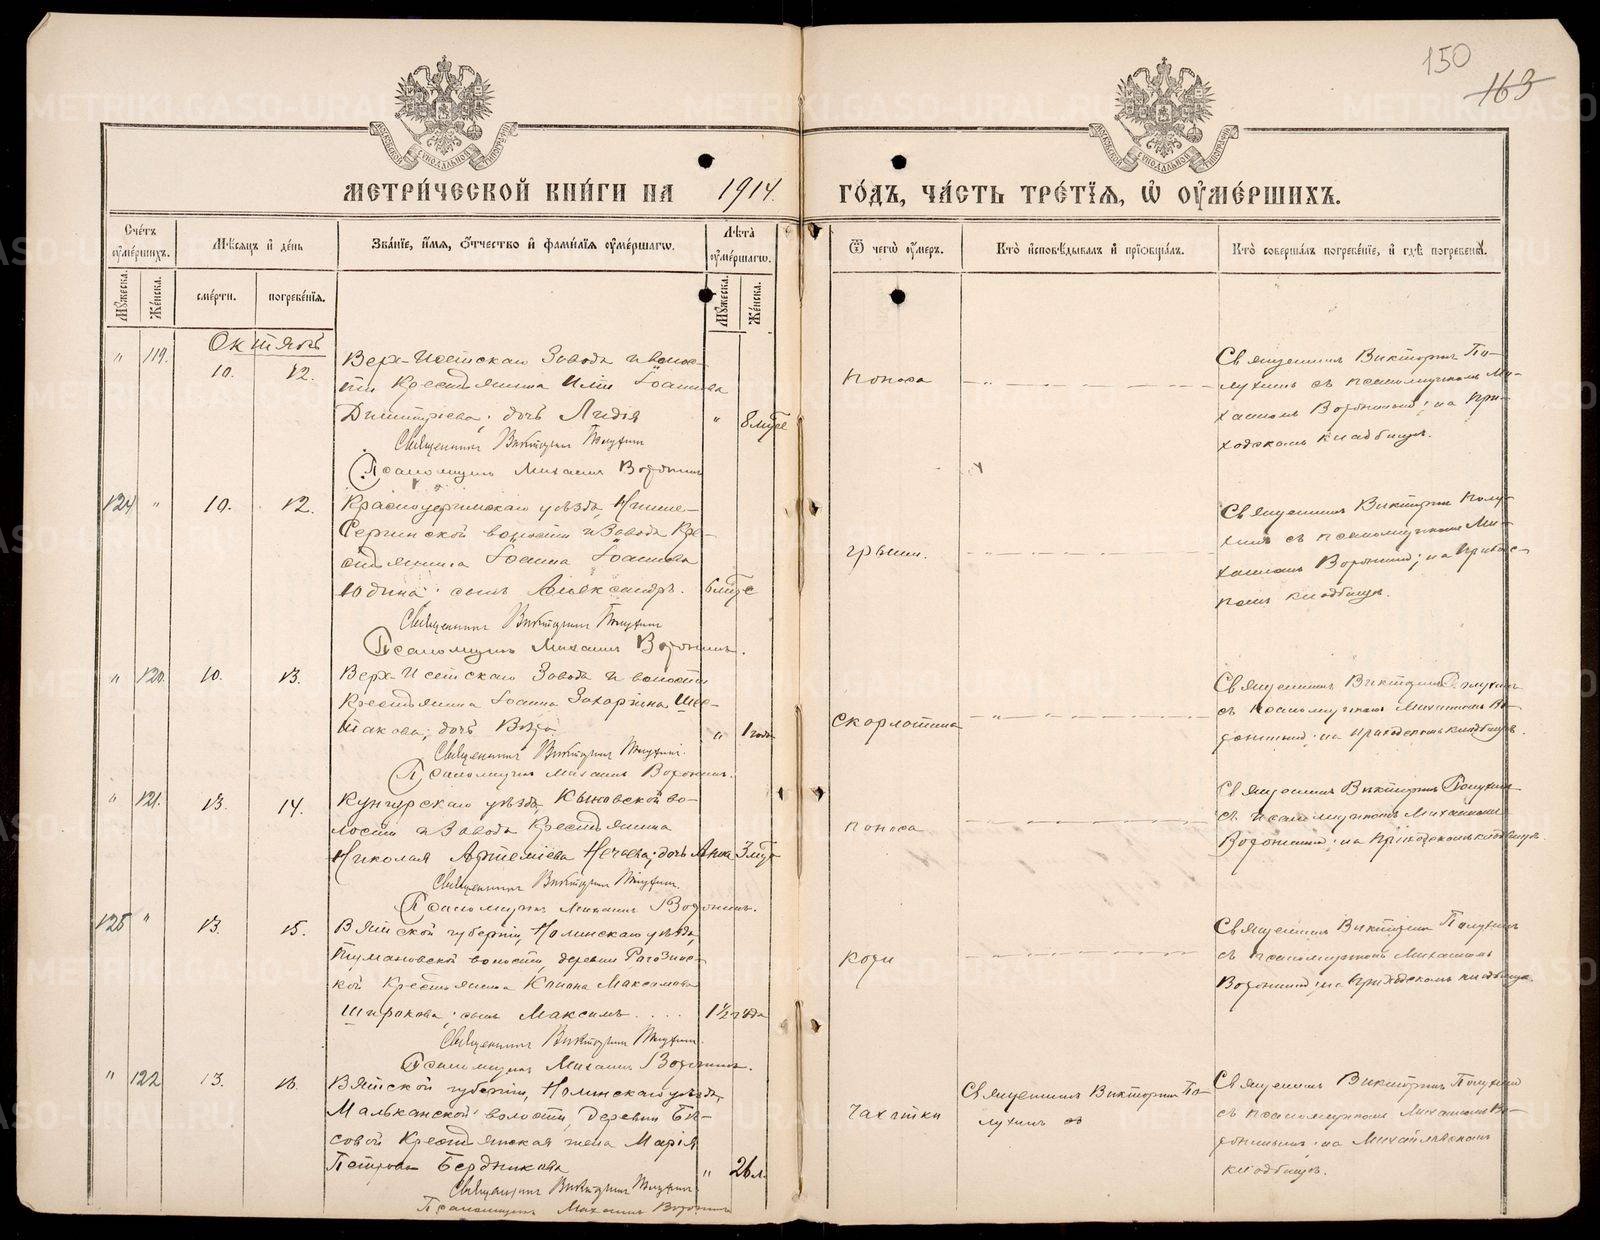 150
163
МЕТРИ́ЧЕСКОЙ КНИ́ГИ НА 1914. ГО́ДЪ, ЧА́СТЬ ТРЕ́ТЇѦ, Ѡ ОУ҆МЕ́РШИХЪ.
Сче́тъ оу҆ме́ршихъ.
Мѣ́сѧцъ и҆ де́нь
Зва́нїе, и҆́мѧ, ѻ҆́тчество и҆ фами́лїѧ оу҆ме́ршагѡ.
Лѣ́та оу҆ме́ршагѡ.
Ѿ чегѡ̀ оу҆́меръ.
Кто̀ и҆сповѣ́дывалъ и҆ прїѡбща́лъ.
Кто̀ соверша́лъ погребе́нїе, и҆ гдѣ̀ погребены̀.
Мꙋ́жеска.
Же́нска.
сме́рти.
погребе́нїѧ.
Мꙋ́жеска.
Же́нска.
Октябрь
" 119. 10. 12.
Верх-Исетскаго Завода и волос-
ти Крестьянина Иліи Іоаннова
Димитріева, дочь Лидія " 8 мѣс
Священникъ Викторинъ Полухинъ
Псаломщикъ Михаилъ Воронинъ
поноса
Священникъ Викторинъ По-
лухинъ съ псаломщикомъ Ми-
хаиломъ Воронинымъ; на При-
ходскомъ кладбищѣ.
124 " 10. 12.
Красноуфимскаго уѣзда, Нижне-
Сергинской волости и Завода Кре-
стьянина Іоанна Іоаннова
Юдина; сынъ Александръ. 6 мѣс
Священникъ Викторинъ Полухинъ
Псаломщикъ Михаилъ Воронинъ.
грыжи.
Священникъ Викторинъ Полу-
хинъ съ псаломщикомъ Ми-
хаиломъ Воронинымъ; на Приходс-
комъ кладбищѣ.
" 120. 10. 13.
Верх-Исетскаго Завода и волости
Крестьянина Іоанна Захарьина Шес-
такова; дочь Вѣра " 1 года
Священникъ Викторинъ Полухинъ.
Псаломщикъ Михаилъ Воронинъ.
скарлатина
Священникъ Викторинъ Полухинъ
съ псаломщикомъ Михаиломъ Во-
ронинымъ; на приходскомъ кладбищѣ.
" 121. 13. 14.
Кунгурскаго уѣзда, Кыновской во-
лости и Завода Крестьянина
Николая Артеміева Нечаева; дочь Анна 3 мѣс
Священникъ Викторинъ Полухинъ.
Псаломщикъ Михаилъ Воронинъ.
поноса
Священникъ Викторинъ Полухинъ
съ псаломщикомъ Михаиломъ
Воронинымъ; на Приходскомъ кладбищѣ.
125 " 13. 15.
Вятской губерніи, Нолинскаго уѣзда,
Тумановской волости, деревни
Крестьянина Максимова
Широкова; сынъ Максимъ.... 1 1/2 года
Священникъ Викторинъ Полухинъ.
Псаломщикъ Михаилъ Воронинъ.
кори
Священникъ Викторинъ Полухинъ
съ псаломщикомъ Михаиломъ
Воронинымъ; на Приходскомъ кладбищѣ
" 122 13. 16.
Вятской губерніи, Нолинскаго уѣзда,
волости, деревни
Крестьянская жена Марія
Петрова Бердникова " 26 л.
Священникъ Викторинъ Полухинъ
Псаломщикъ Михаилъ Воронинъ
чахотки
Священникъ Викторинъ По-
лухинъ
Священникъ Викторинъ Полухинъ
съ псаломщикомъ Михаиломъ Во-
ронинымъ; на Михайловскомъ
кладбищѣ.